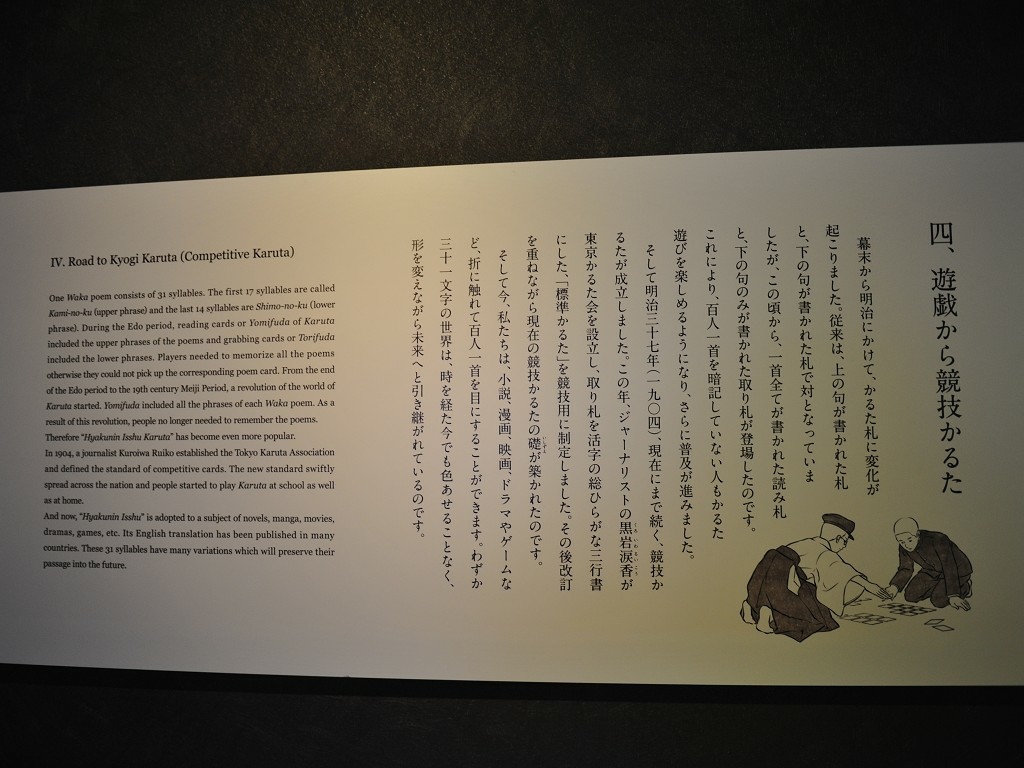 四、遊戯から競技かるた
幕末から明治にかけて、かるた札に変化が
起こりました。従来は、上の句が書かれた札
と、下の句が書かれた札で対となっていま
したが、この頃から、一首全てが書かれた読み札
と、下の句のみが書かれた取り札が登場したのです。
これにより、百人一首を暗記していない人もかるた
遊びを楽しめるようになり、さらに普及が進みました。
そして明治三十七年(一九〇四)、現在にまで続く、競技か
るたが成立しました。この年、ジャーナリストの黒岩涙香が
東京かるた会を設立し、取り札を活字の総ひらがな三行書
にした、「標準かるた」を競技用に制定しました。その後改訂
を重ねながら現在の競技かるたの礎が築かれたのです。
そして今、私たちは、小説、漫画、映画、ドラマやゲームな
ど、折に触れて百人一首を目にすることができます。わずか
三十一文字の世界は、時を経た今でも色あせることなく、
形を変えながら未来へと引き継がれているのです。
IV. Road to Kyogi Karuta (Competitive Karuta)
One Waka poem consists of 31 syllables. The first 17 syllables are called
Kami-no-ku (upper phrase) and the last 14 syllables are Shimo-no-ku (lower
phrase). During the Edo period, reading cards or Yomifuda of Karuta
included the upper phrases of the poems and grabbing cards or Torifuda
included the lower phrases. Players needed to memorize all the poems
otherwise they could not pick up the corresponding poem card. From the end
of the Edo period to the 19th century Meiji Period, a revolution of the world of
Karuta started. Yomifuda included all the phrases of each Waka poem. As a
result of this revolution, people no longer needed to remember the poems.
Therefore "Hyakunin Isshu Karuta" has become even more popular.
In 1904, a journalist Kuroiwa Ruiko established the Tokyo Karuta Association
and defined the standard of competitive cards. The new standard swiftly
spread across the nation and people started to play Karuta at school as well
as at home.
And now, "Hyakunin Isshu" is adopted to a subject of novels, manga, movies,
dramas, games, etc. Its English translation has been published in many
countries. These 31 syllables have many variations which will preserve their
passage into the future.